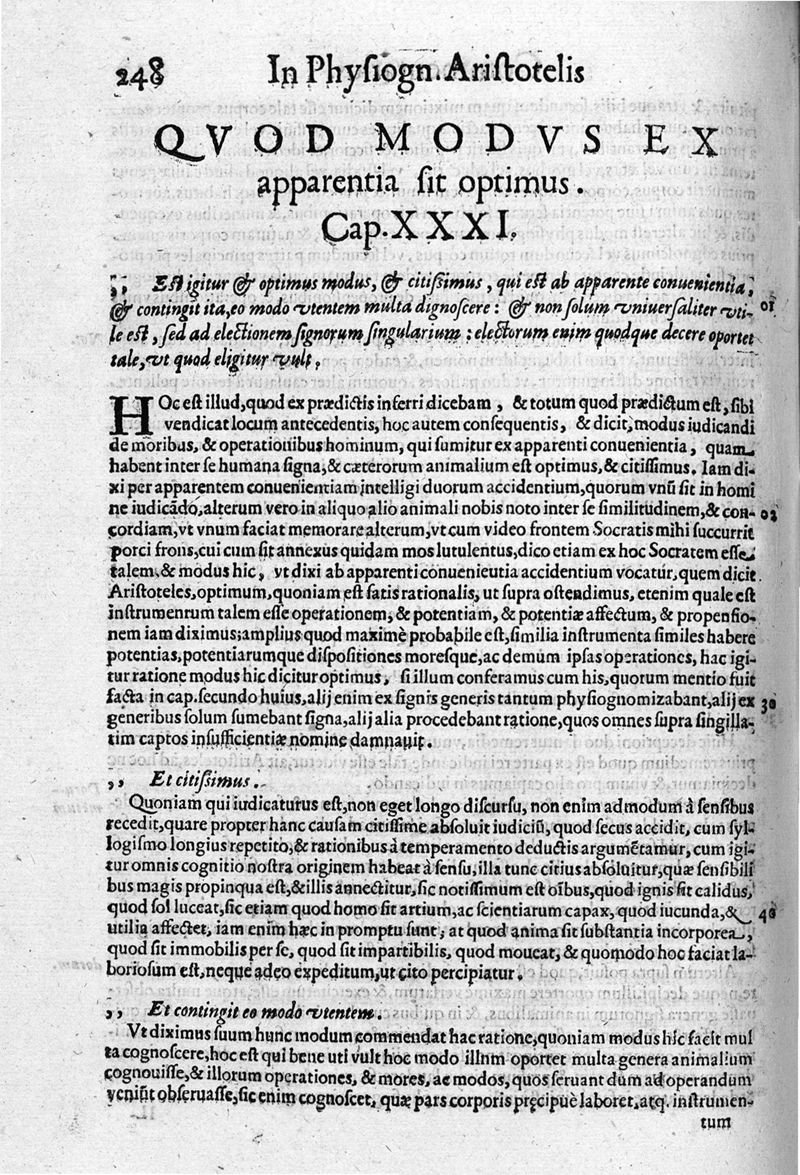 248 In Physiogn. Aristotelis
QVOD MODVS EX
apparentia sit optimus.
Cap. XXXI.
,, Est igitur & optimus modus, & citissimus, qui est ab apparente conuenientia,
& contingit ita, eo modo vtentem multa dignoscere: & non solum vniuersaliter vti- 01
le est, sed ad electionem signorum singularium: electorum enim quodque decere oportet
tale, vt quod eligitur vult.
HOc est illud, quod ex prædictis inferri dicebam, & totum quod prædictum est, sibi
vendicat locum antecedentis, hoc autem consequentis, & dicit, modus iudicandi
de moribus, & operationibus hominum, qui sumitur ex apparenti conuenientia, quam
habent inter se humana signa, & cæterorum animalium est optimus, & citissimus. Iam di-
xi per apparentem conuenientiam intelligi duorum accidentium, quorum vnũ sit in homi
ne iudicãdo, alterum vero in aliquo alio animali nobis noto inter se similitudinem, & con- 02
cordiam, vt vnum faciat memorare alterum, vt cum video frontem Socratis mihi succurrit
porci frons, cui cum sit annexus quidam mos lutulentus, dico etiam ex hoc Socratem esse
talem, & modus hic, vt dixi ab apparenti conuenieutia accidentium vocatur, quem dicit
Aristoteles, optimum, quoniam est satis rationalis, ut supra ostendimus, etenim quale est
instrumenrum talem esse operationem, & potentiam, & potentiæ affectum, & propensio-
nem iam diximus; amplius quod maximè probabile est, similia instrumenta similes habere
potentias, potentiarumque dispositiones moresque, ac demum ipsas operationes, hac igi-
tur ratione modus hic dicitur optimus, si illum conferamus cum his, quorum mentio fuit
facta in cap. secundo huius, alij enim ex signis generis tantum physiognomizabant, alij ex 30
generibus solum sumebant signa, alij alia procedebant ratione, quos omnes supra singilla-
tim captos insufficientiæ nomine damnauit.
,, Et citissimus.
Quoniam qui iudicaturus est, non eget longo discursu, non enim admodum à sensibus
recedit, quare propter hanc causam citissime absoluit iudiciũ, quod secus accidit, cum syl-
logismo longius repetito, & rationibus à temperamento deductis argumẽtamur, cum igi-
tur omnis cognitio nostra originem habeat à sensu, illa tunc citius absoluitur, quæ sensibili
bus magis propinqua est, & illis annectitur, sic notissimum est oĩbus, quod ignis sit calidus,
quod sol luceat, sic etiam quod homo sit artium, ac scientiarum capax, quod iucunda, & 40
utilia affectet, iam enim hæc in promptu sunt, at quod anima sit substantia incorporea,
quod sit immobilis per se, quod sit impartibilis, quod moueat, & quomodo hoc faciat la-
boriosum est, neque adeo expeditum, ut cito percipiatur.
,, Et contingit eo modo vtentem.
Vt diximus suum hunc modum commendat hac ratione, quoniam modus hic facit mul
ta cognoscere, hoc est qui bene uti vult hoc modo illnm oportet multa genera animalium
cognouisse, & illorum operationes, & mores, ac modos, quos seruant dum ad operandum
veniũt obseruasse, sic enim cognoscet, quæ pars corporis pręcipuè laboret, atq. instrumen-
tum